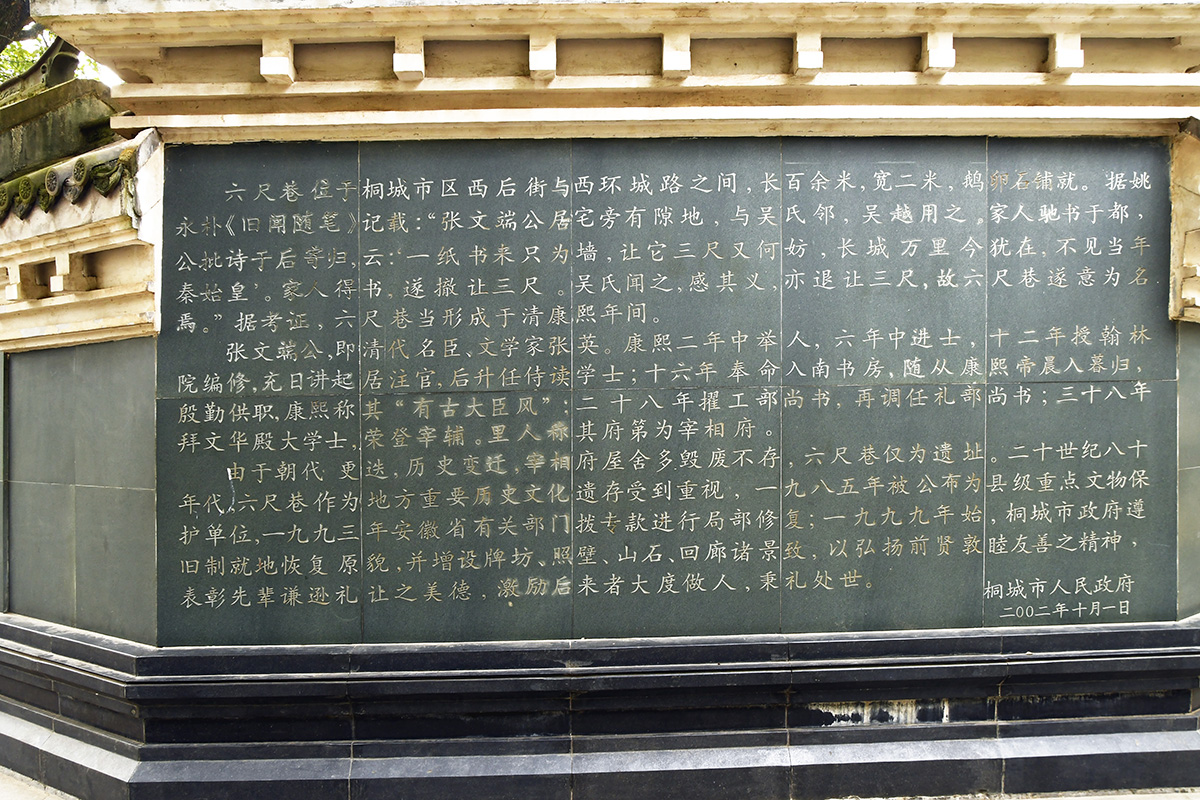 六尺巷位于桐城市区西后街与西环城路之间，长百余米，宽二米，鹅卵石铺就。据姚
永朴《旧闻随笔》记载：“张文端公居宅旁有隙地，与吴氏邻，吴越用之。家人驰书于都，
公批诗于后寄归，云：‘一纸书来只为墙，让它三尺又何妨，长城万里今犹在，不见当年
秦始皇’。家人得书，遂撤让三尺。吴氏闻之，感其义，亦退让三尺，故六尺巷遂意为名
焉。”据考证，六尺巷当形成于清康熙年间。
张文端公，即清代名臣、文学家张英。康熙二年中举人，六年中进士，十二年授翰林
院编修，充日讲起居注官，后升任侍读学士；十六年奉命入南书房，随从康熙帝晨入暮归，
殷勤供职，康熙称其“有古大臣风”；二十八年擢工部尚书，再调任礼部尚书；三十八年
拜文华殿大学士，荣登宰辅。里人称其府第为宰相府。
由于朝代更迭，历史变迁，宰相府屋舍多毁废不存，六尺巷仅为遗址。二十世纪八十
年代，六尺巷作为地方重要历史文化遗存受到重视，一九八五年被公布为县级重点文物保
护单位，一九九三年安徽省有关部门拨专款进行局部修复；一九九九年始，桐城市政府遵
旧制就地恢复原貌，并增设牌坊、照壁、山石、回廊诸景致，以弘扬前贤敦睦友善之精神，
表彰先辈谦逊礼让之美德，激励后来者大度做人，秉礼处世。
桐城市人民政府
二00二年十月一日